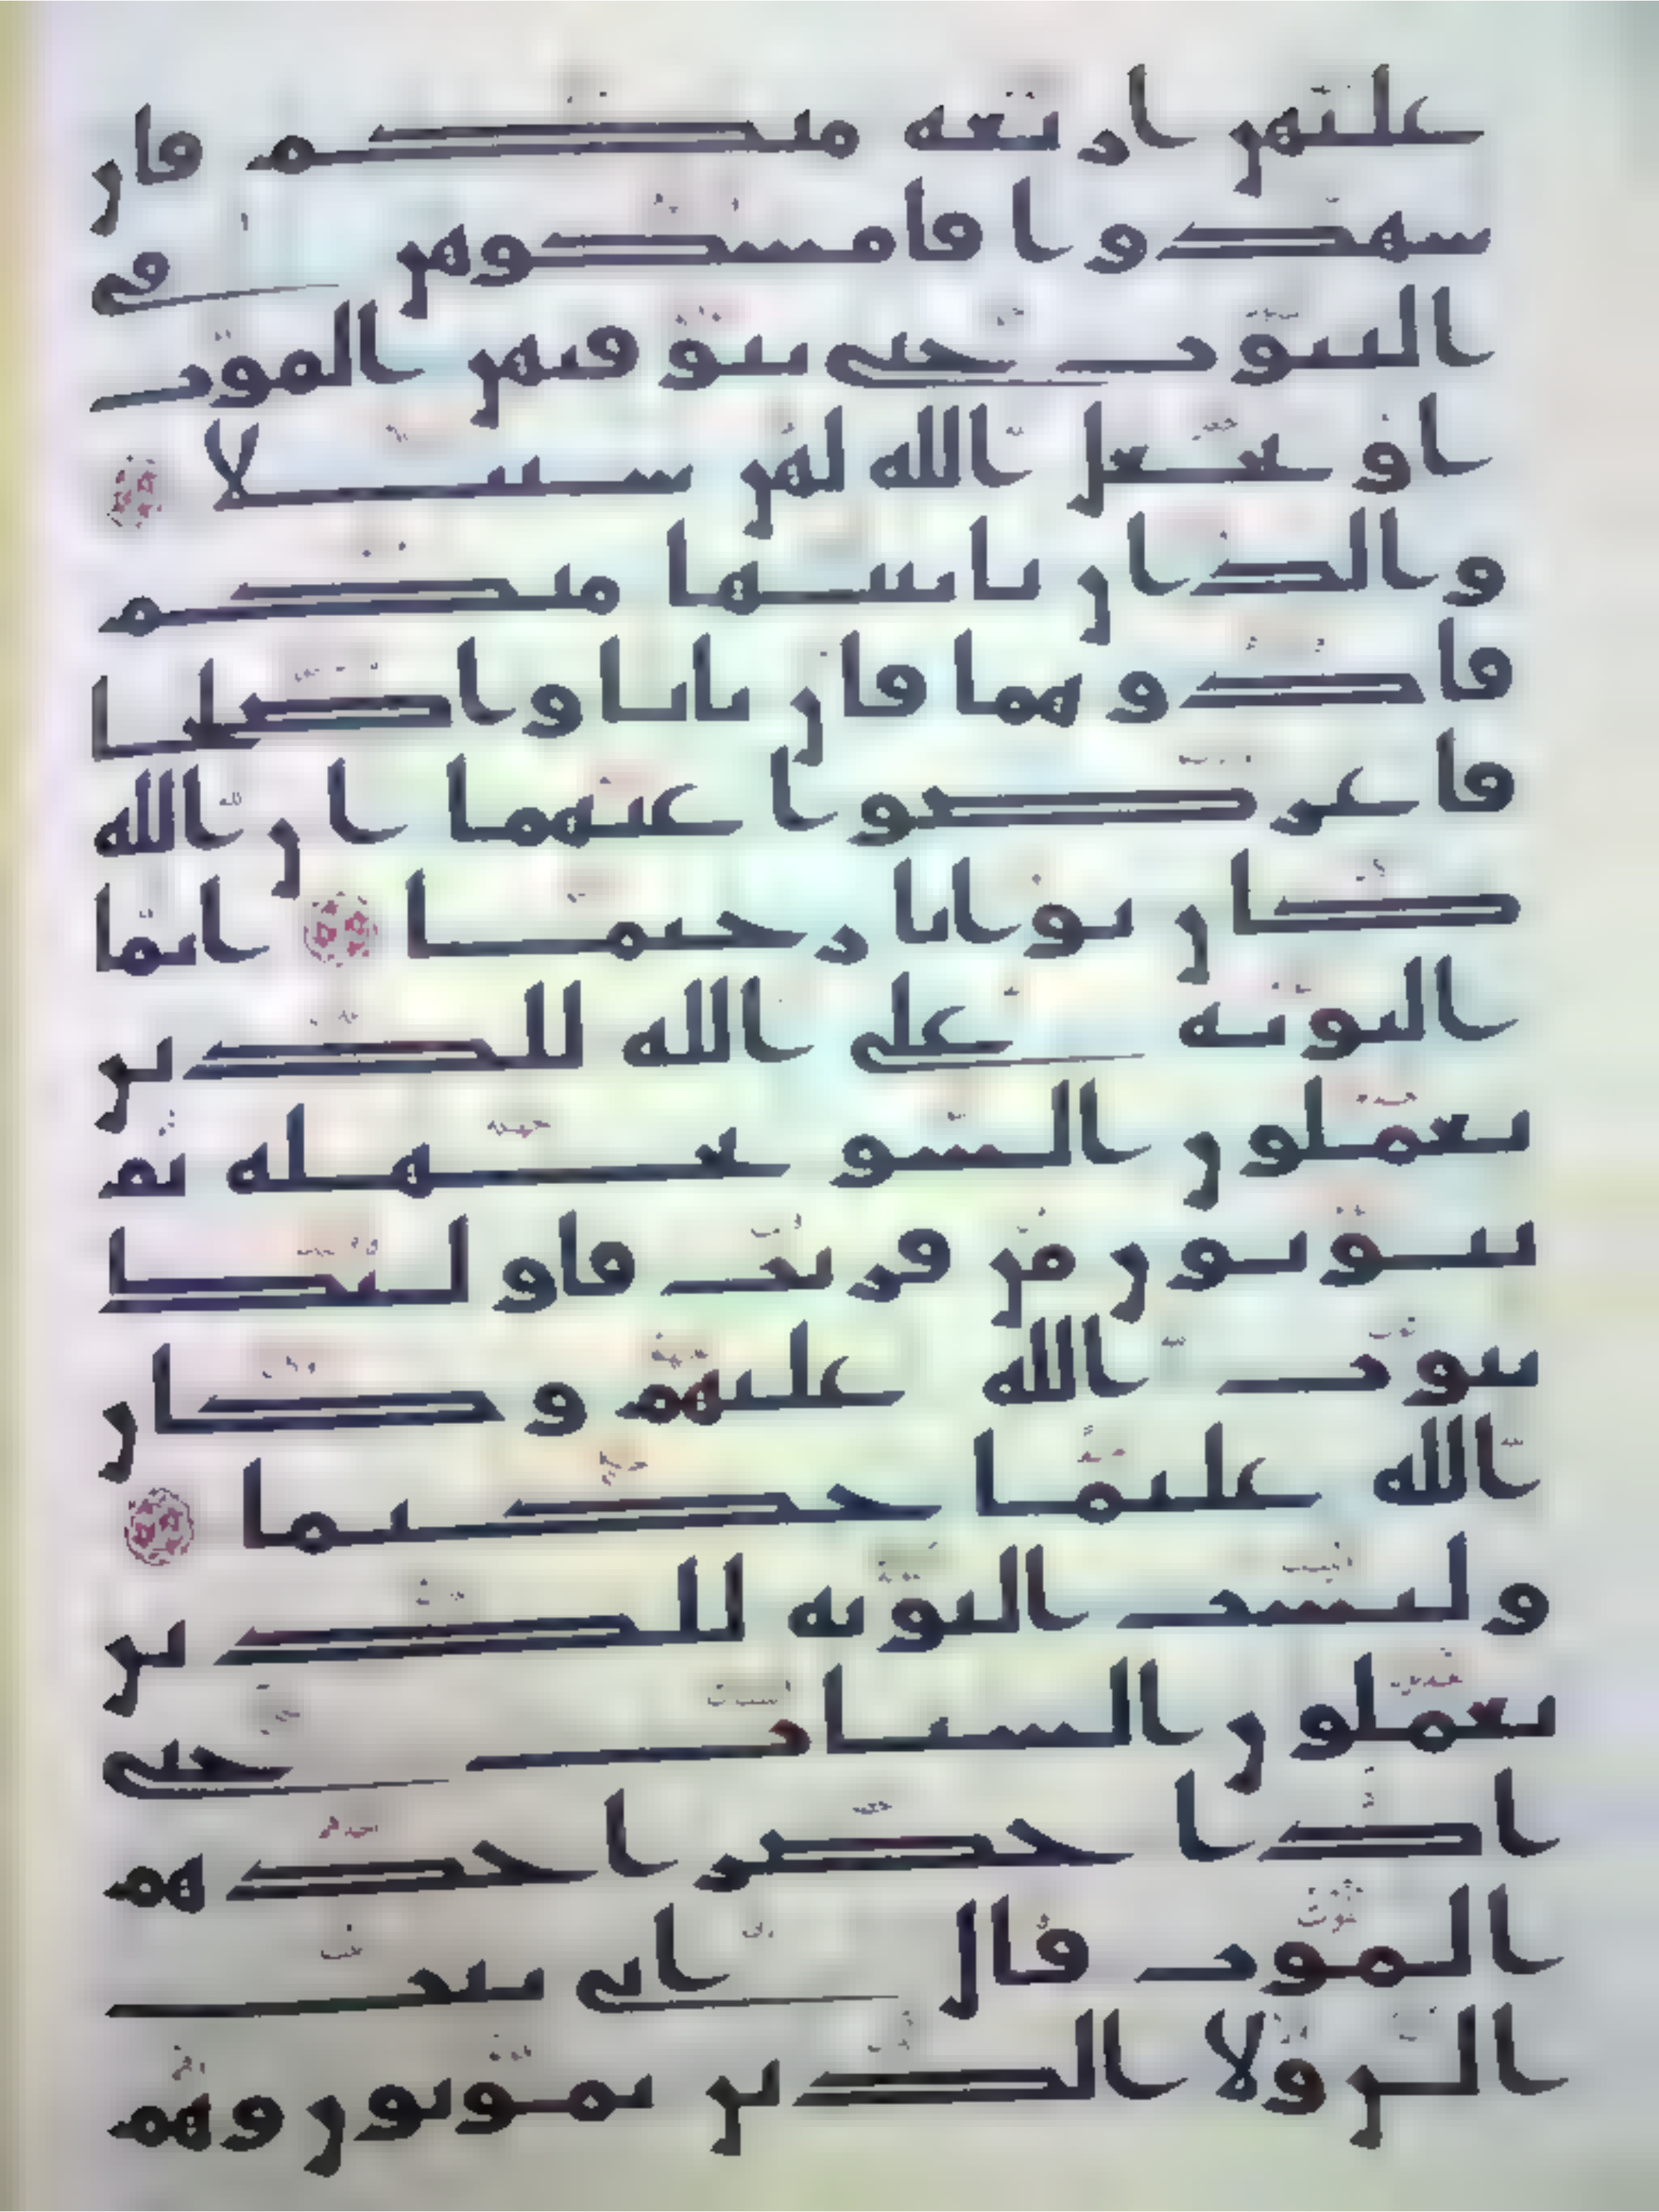 عليهن اربعة منكم فان
شهدوا فامسكوهن في
البيوت حتى يتوفيهن الموت
او يجعل الله لهن سبيلا
والذان ياتينها منكم
فاذوهما فان تابا واصلحا
فاعرضوا عنهما ان الله
كان توابا رحيما انما
التوبة على الله للذين
يعملون السو بجهلة ثم
يتوبون من قريب فاولئك
يتوب الله عليهم وكان
الله عليما حكيما
وليست التوبة للذين
يعملون السيات حتى
اذا حضر احدهم
الموت قال اني تبت
الن ولا الذين يموتون وهم